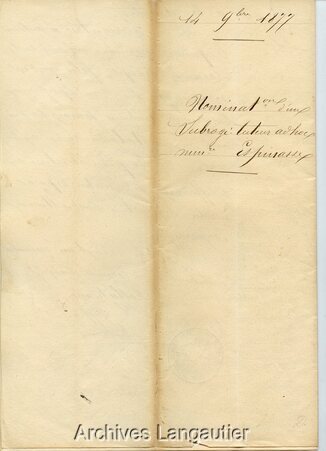 14 9bre 1877
Nominat.on d'un
Subrogé tuteur ad hoc
mineure Espinasse
Archives Langautier